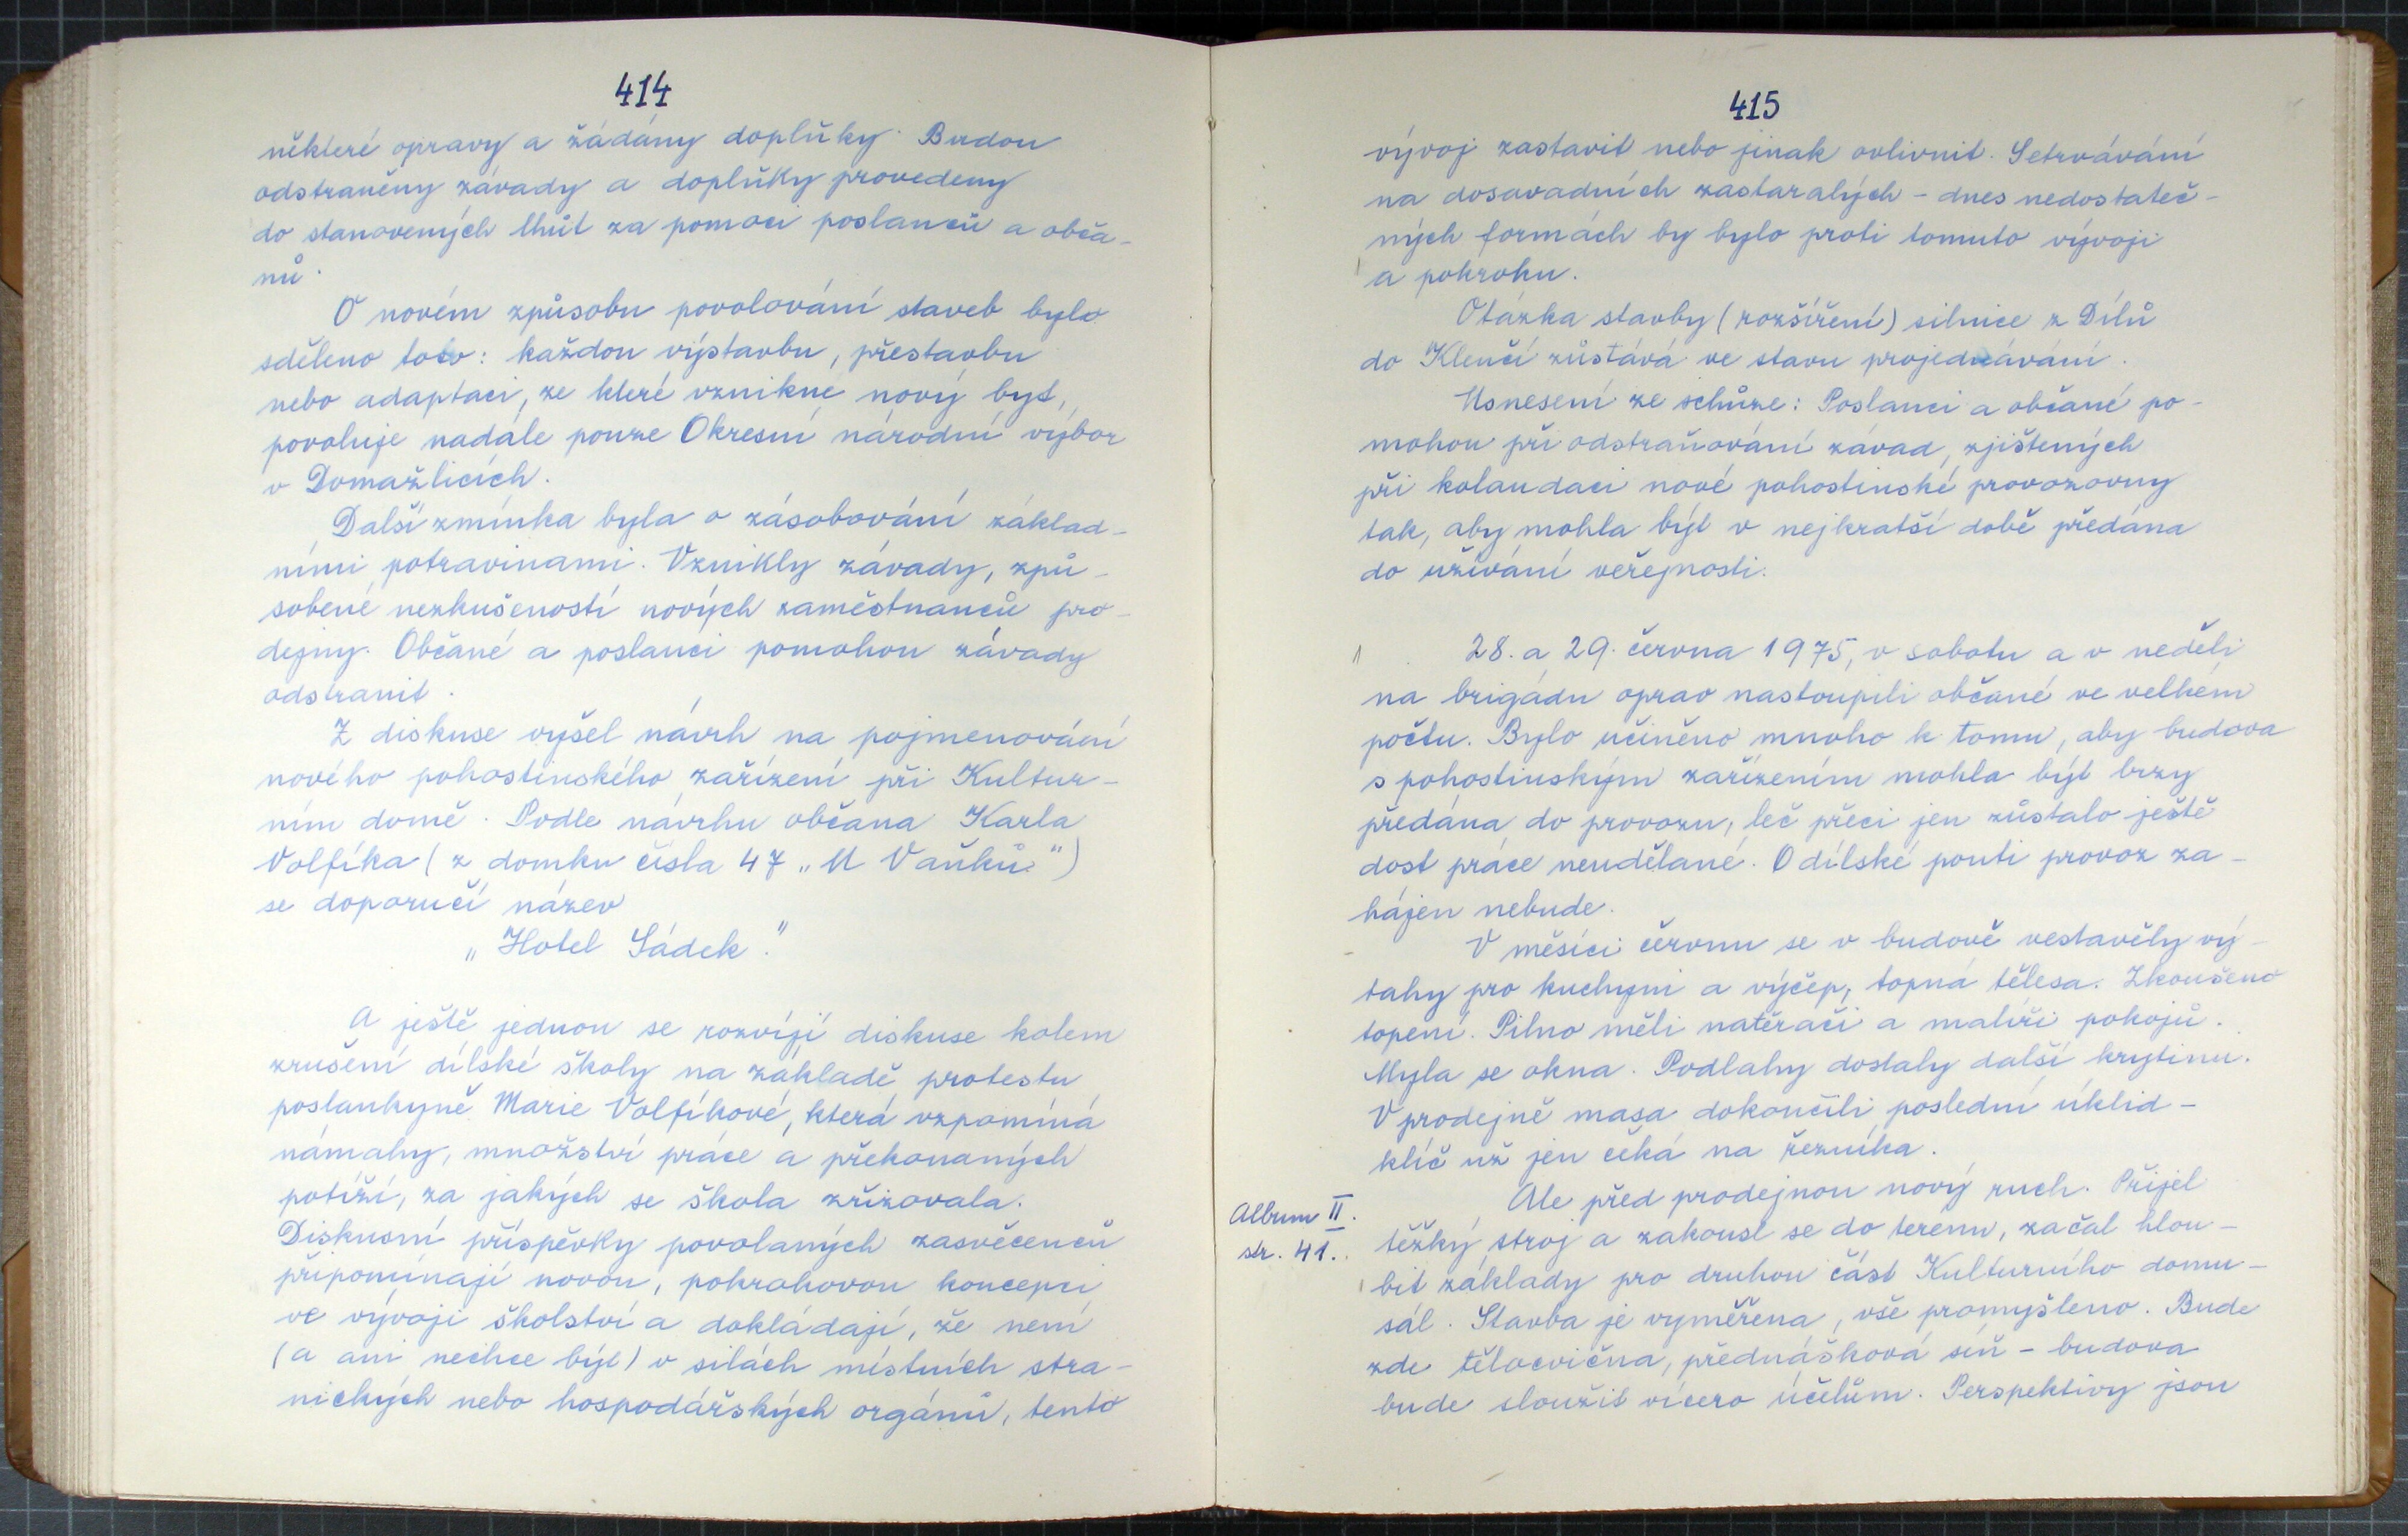 414
některé opravy a žádány doplňky. Budou
odstraněny závady a doplňky provedeny
do stanovených lhůt za pomoci poslanců a obča-
nů.
O novém způsobu povolování staveb bylo
sděleno toto: každou výstavbu, přestavbu
nebo adaptaci, ze které vznikne nový byt,
povoluje nadále pouze Okresní národní výbor
v Domažlicích.
Další zmínka byla o zásobování základ-
ními potravinami. Vznikly závady, způ-
sobené nezkušeností nových zaměstnanců pro-
dejny. Občané a poslanci pomohou závady
odstranit.
Z diskuse vyšel návrh na pojmenování
nového pohostinského zařízení při Kultur-
ním domě. Podle návrhu občana Karla
Volfíka (z domku čísla 47 „U Vaňků“)
se doporučí název
„Hotel Sádek.“
A ještě jednou se rozvíjí diskuse kolem
zrušení dílské školy na základě protestu
poslankyně Marie Volfíkové, která vzpomíná
námahy, množství práce a překonaných
potíží, za jakých se škola zřizovala.
Diskusní příspěvky povolaných zasvěcenců
připomínají novou, pokrokovou koncepci
ve vývoji školství a dokládají, že není
(a ani nechce být) v silách místních stra-
nických nebo hospodářských orgánů, tento
415
vývoj zastavit nebo jinak ovlivnit. Setrvávání
na dosavadních zastaralých - dnes nedostateč-
ných formách by bylo proti tomuto vývoji
a pokroku.
Otázka stavby (rozšíření) silnice z Dílů
do Klenčí zůstává ve stavu projednávání.
Usnesení ze schůze: Poslanci a občané po-
mohou při odstraňování závad, zjištených
při kolaudaci nové pohostinské provozovny
tak, aby mohla být v nejkratší době předána
do užívání veřejnosti.
28. a 29. června 1975, v sobotu a v neděli
na brigádu oprav nastoupili občané ve velkém
počtu. Bylo učiněno mnoho k tomu, aby budova
s pohostinským zařízením mohla být brzy
předána do provozu, leč přeci jen zůstalo ještě
dost práce neudělané. O dílské pouti provoz za-
hájen nebude.
V měsíci červnu se v budově vestavěly vý-
tahy pro kuchyni a výčep, topná tělesa. Zkoušeno
topení. Pilno měli natěrači a malíři pokojů.
Myla se okna. Podlahy dostaly další krytinu.
V prodejně masa dokončili poslední úklid -
klíč už jen čeká na řezníka.
Ale před prodejnou nový ruch. Přijel
Album II.
str. 41.
těžký stroj a zakousl se do terenu, začal hlou-
bit základy pro druhou část Kulturního domu -
sál. Stavba je vyměřena, vše promyšleno. Bude
zde tělocvična, přednášková síň - budova
bude sloužit vícero účelům. Perspektivy jsou